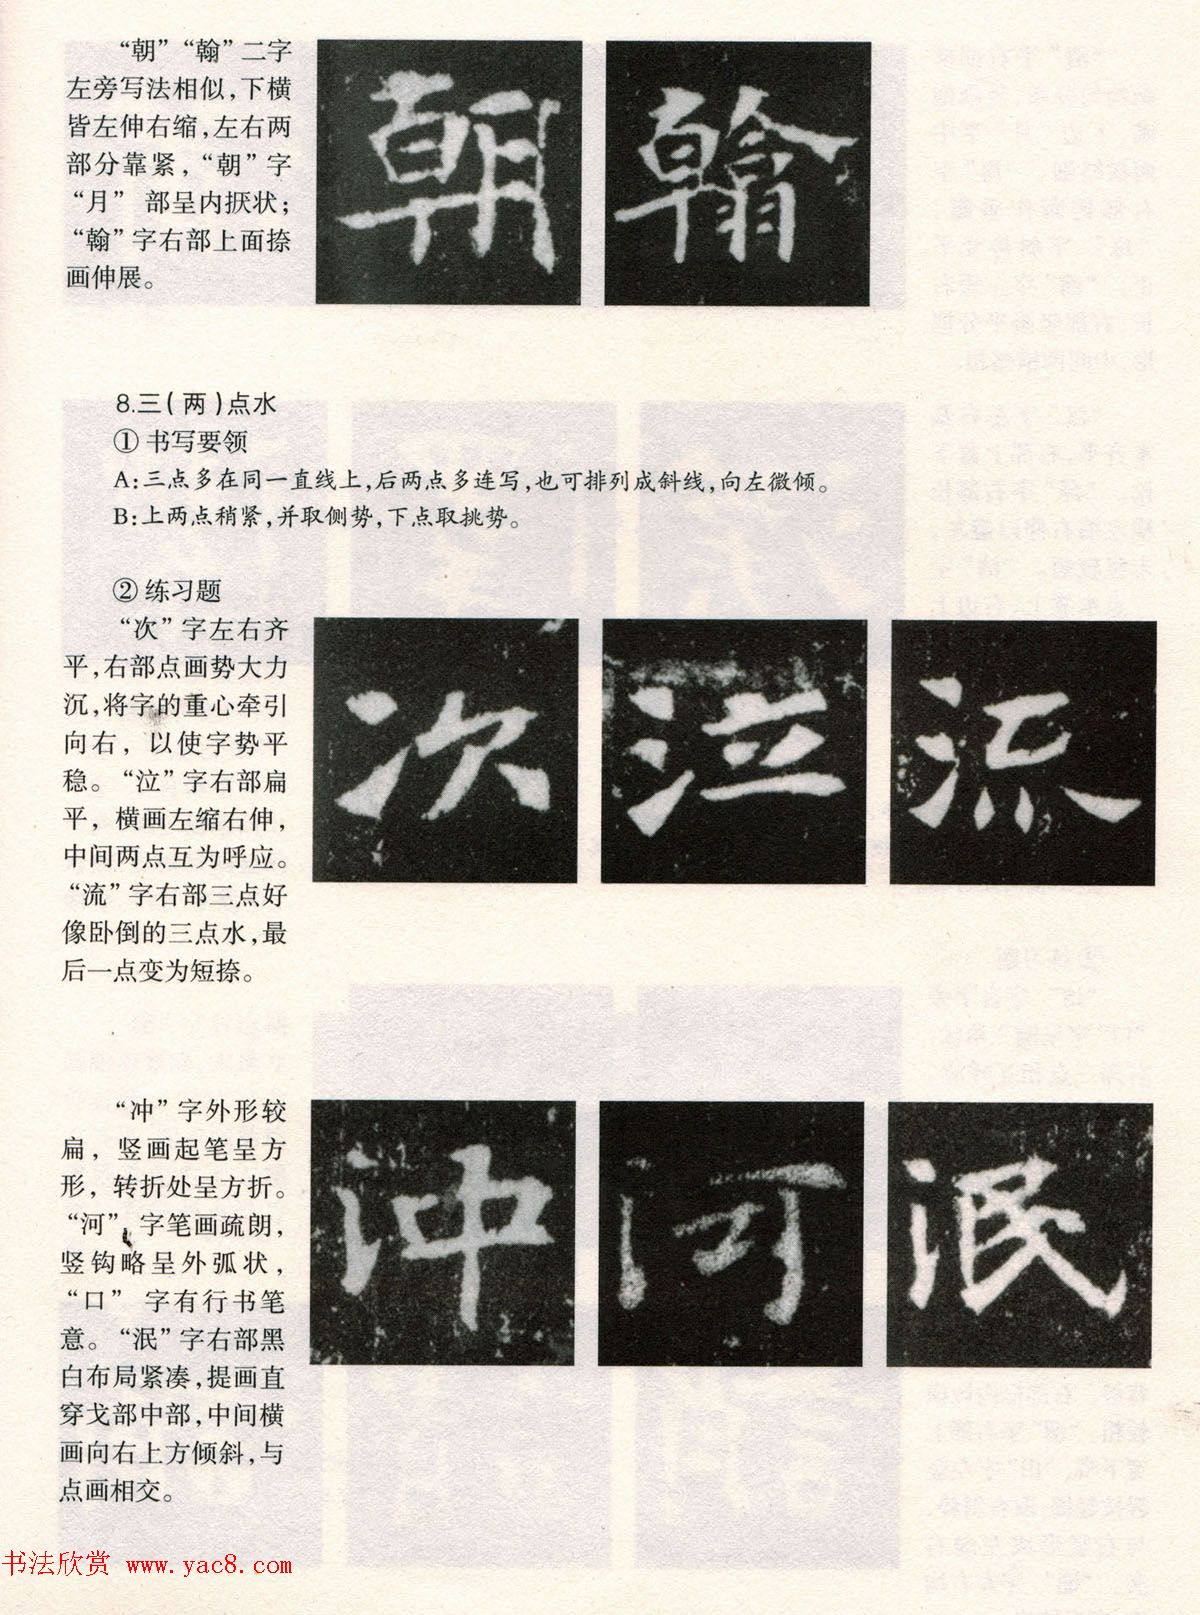 “朝”“翰”二字
左旁写法相似,下横
皆左伸右缩,左右两
部分靠紧,“朝”字
“月” 部呈内捩状;
“翰”字右部上面捺
画伸展。
朝
翰
8.三(两)点水
① 书写要领
A:三点多在同一直线上,后两点多连写,也可排列成斜线,向左微倾。
B:上两点稍紧,并取侧势,下点取挑势。
② 练习题
“次”字左右齐
平,右部点画势大力
沉,将字的重心牵引
向右, 以使字势平
稳。“泣”字右部扁
平, 横画左缩右伸,
中间两点互为呼应。
“流”字右部三点好
像卧倒的三点水,最
后一点变为短捺。
次
泣
流
“冲”字外形较
扁, 竖画起笔呈方
形, 转折处呈方折。
“河” 字笔画疏朗,
竖钩略呈外弧状,
“口” 字有行书笔
意。“泯”字右部黑
白布局紧凑,提画直
穿戈部中部,中间横
画向右上方倾斜,与
点画相交。
冲
河
泯
书法欣赏 www.yac8.com